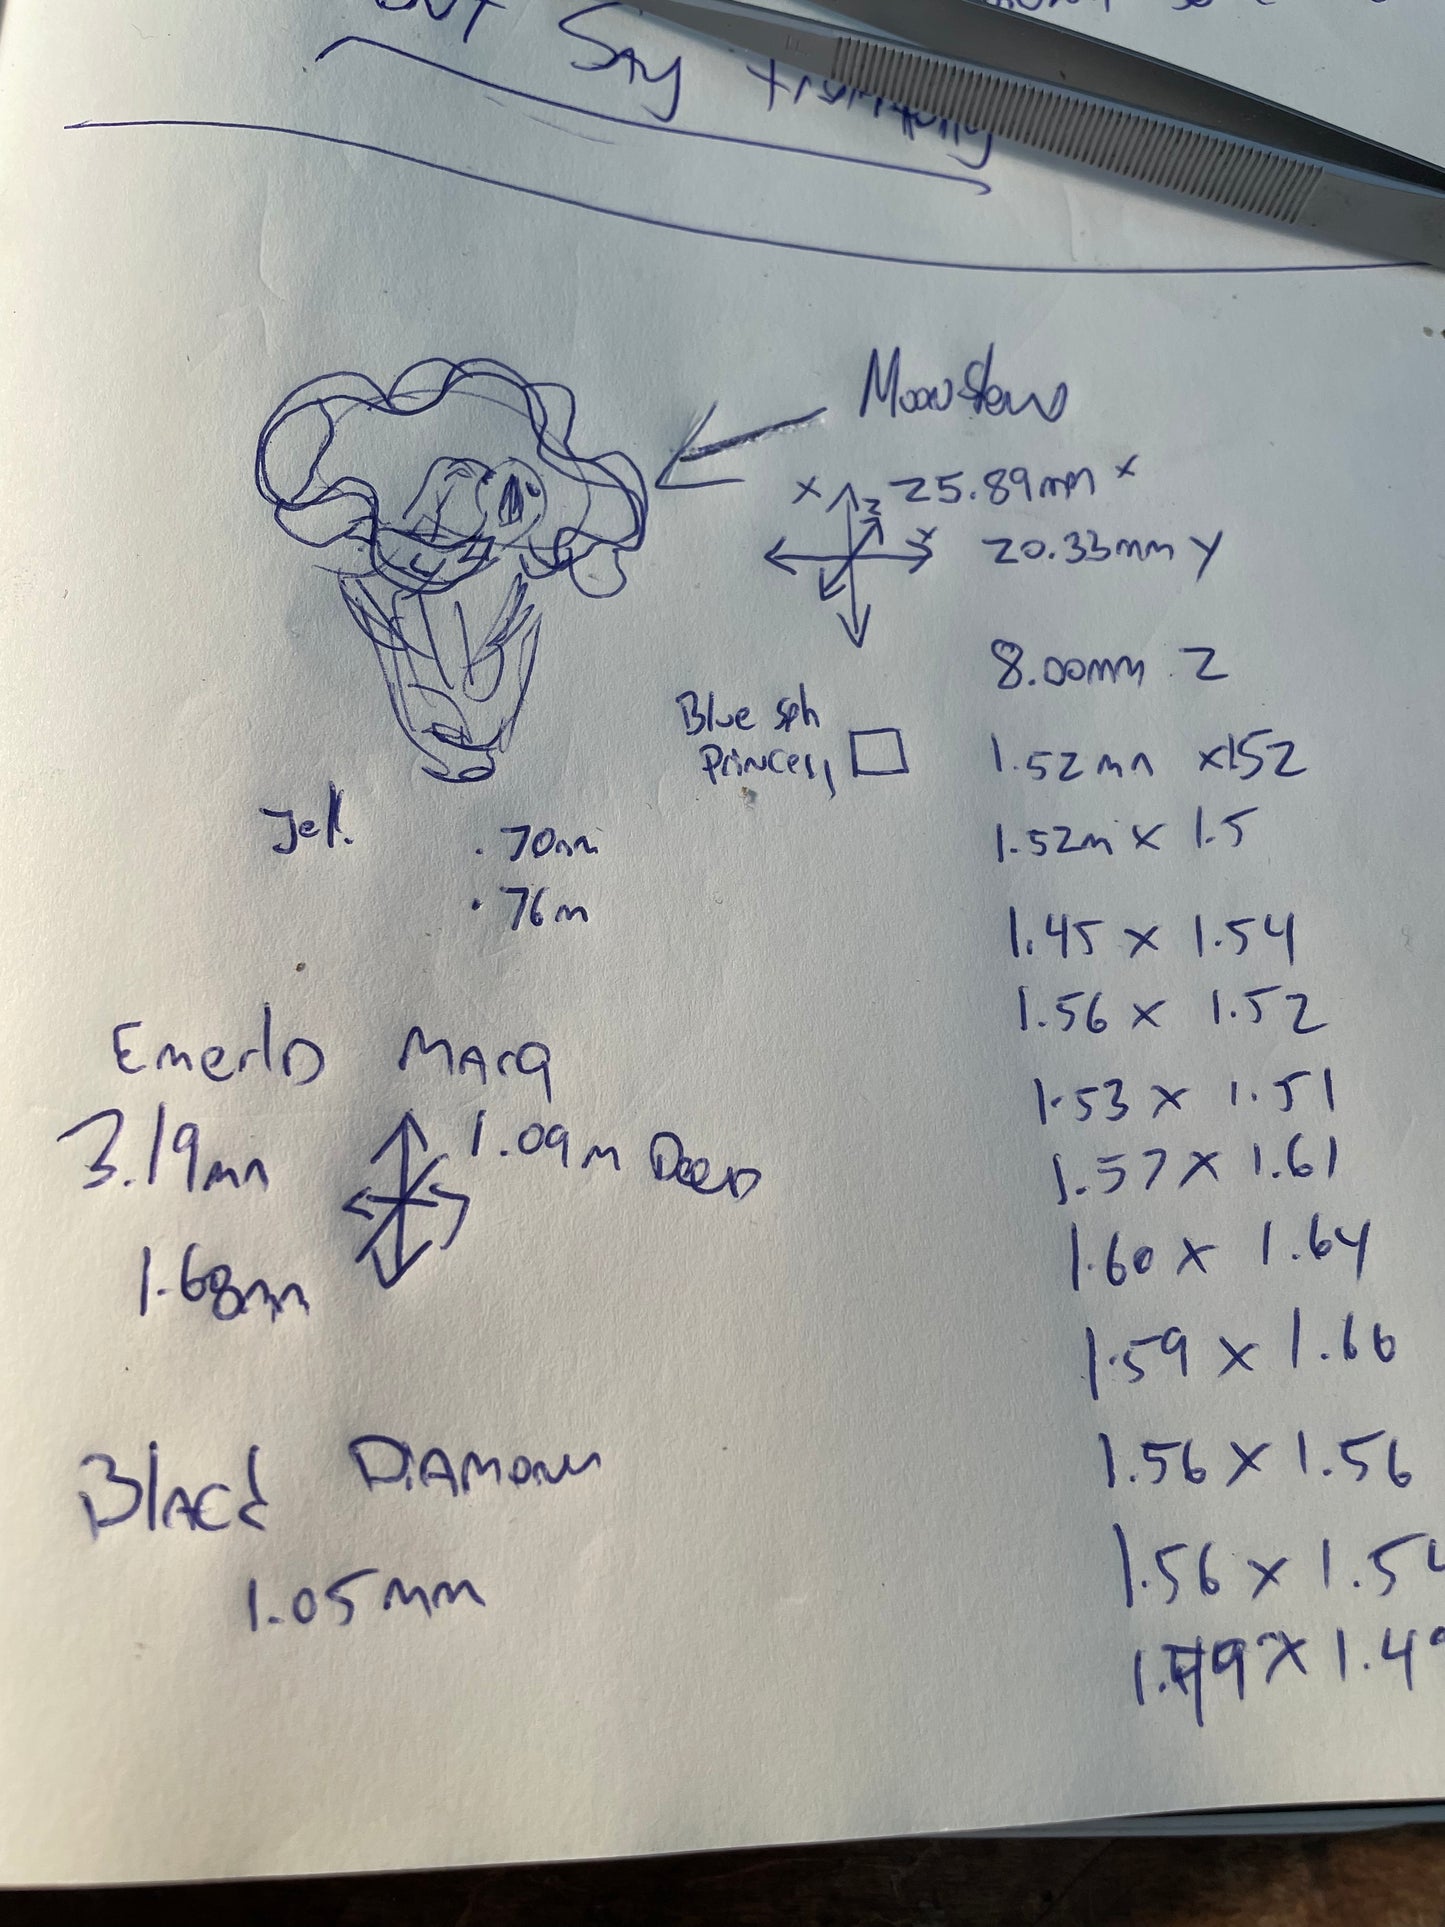 Say
Moonstone
x z 25.89mm x
y 20.33mm y
8.00mm Z
Blue Sph
Princess
1.52mm x152
1.52m x 1.5
1.45 x 1.54
1.56 x 1.52
1.53 x 1.51
1.57 x 1.61
1.60 x 1.64
1.59 x 1.66
1.56 x 1.56
1.56 x 1.54
1.49 x 1.49
.70mm
.76m
Emerld Marq
3.19mm
1.09m Deep
1.68mm
Black Diamond
1.05mm